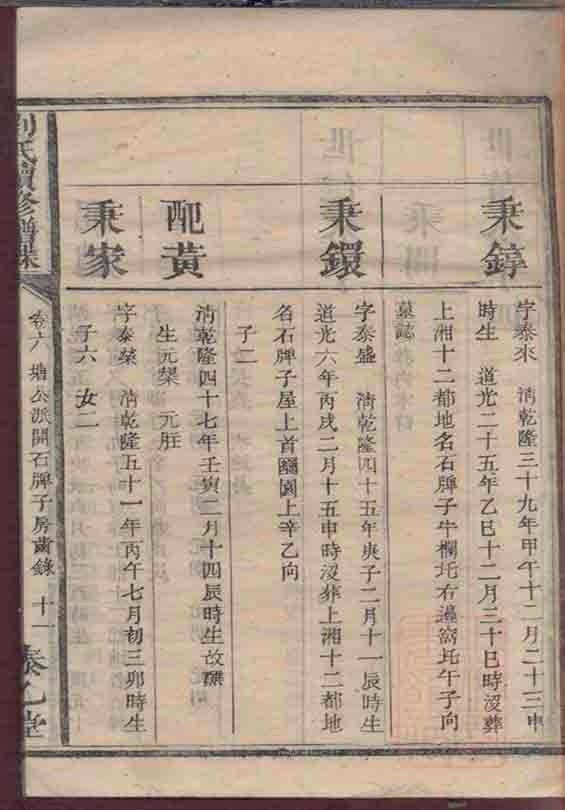 秉錞
字泰來　清乾隆三十九年甲午十二月二十三申
時生　道光二十五年乙巳十二月三十巳時沒葬
上湘十二都地名石牌子牛欄圫右邊窩圫午子向
墓誌
秉鐶
字泰盛　清乾隆四十五年庚子二月十一辰時生
道光六年丙戌二月十五申時沒葬上湘十二都地
名石牌子屋上首園上辛乙向
子二
配黃
清乾隆四十七年壬寅二月十四辰時生故醮
生元榘　元
秉家
字泰榮　清乾隆五十一年丙午七月初三卯時生
子六　女二
劉氏續修譜牒
卷六　塘公派開石牌子房齒錄　十一
泰乙堂